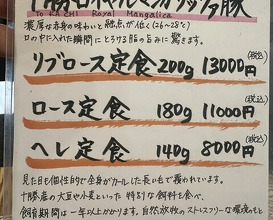 ロイヤルマンガリッツァ豚
TOKACHI Royal Mangalica
濃厚な赤身の味わいと融点が低く(26~28℃)
口の中に入れた瞬間にとろける脂の旨みに驚きます。
リブロース定食 200g 13000円 (税込)
ロース定食 180g 11000円 (税込)
ヘレ定食 140g 8000円 (税込)
見た目も個性的で全身がカールした長い毛で覆われています。
十勝産の大豆や小麦といった特別な飼料を食べ、
飼育期間は一年以上かかります。自然放牧のストレスフリーな環境のもと